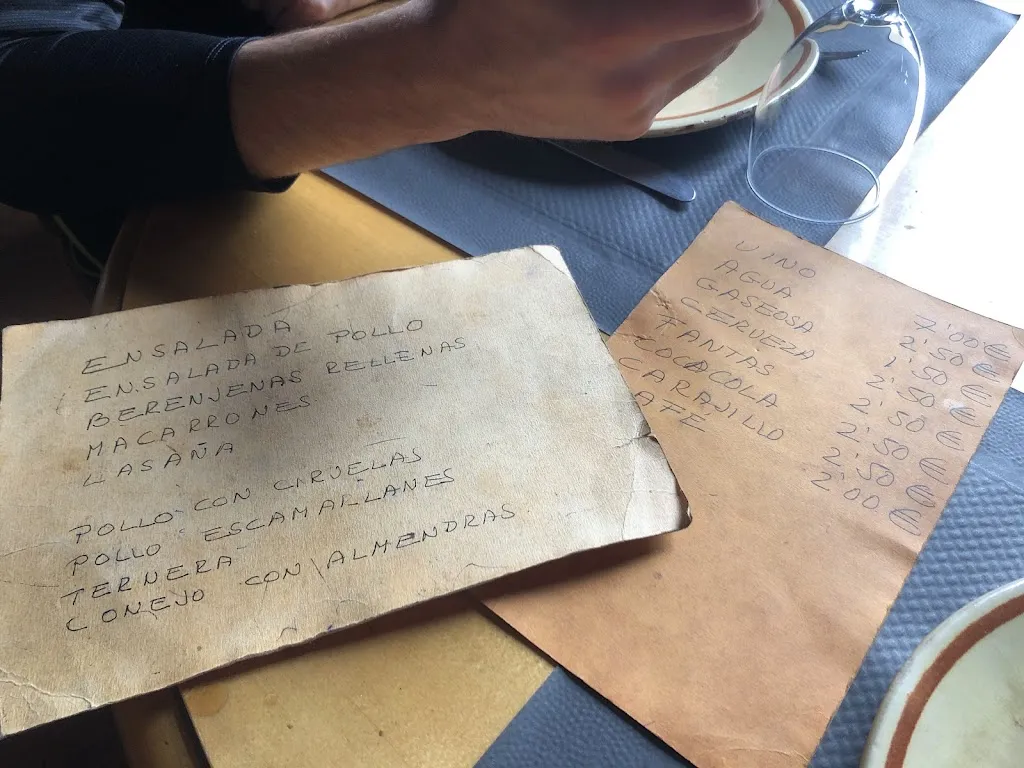 ENSALADA
ENSALADA DE POLLO
BERENJENAS RELLENAS
MACARRONES
LASAÑA
POLLO CON CIRUELAS
POLLO ESCAMALLANES
TERNERA
CONEJO CON ALMENDRAS
VINO 7'00 €
AGUA 2'50 €
GASEOSA 1'50 €
CERVEZA 2'50 €
FANTAS 2'50 €
COCACOLA 2'50 €
CARAJILLO 2'50 €
AFÉ 2'00 €